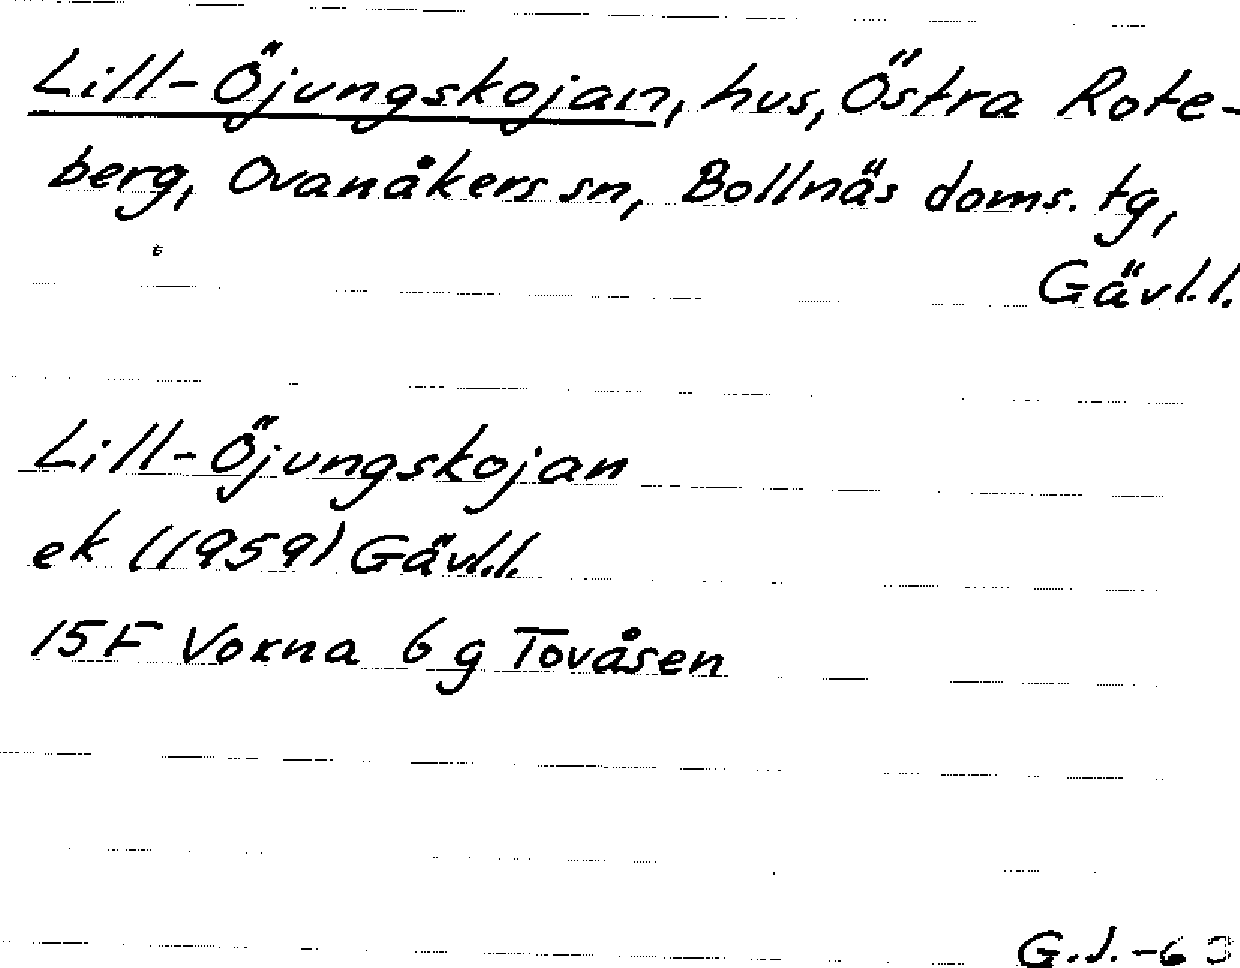 Lill-Öjungskojan, hus, Östra Rote-
berg, Ovanåkers sn, Bollnäs doms. tg,
Gävl.l.
Lill-Öjungskojan
ek (1959) Gävl.l.
15F Voxna 6 g Tovåsen
G.J.-63